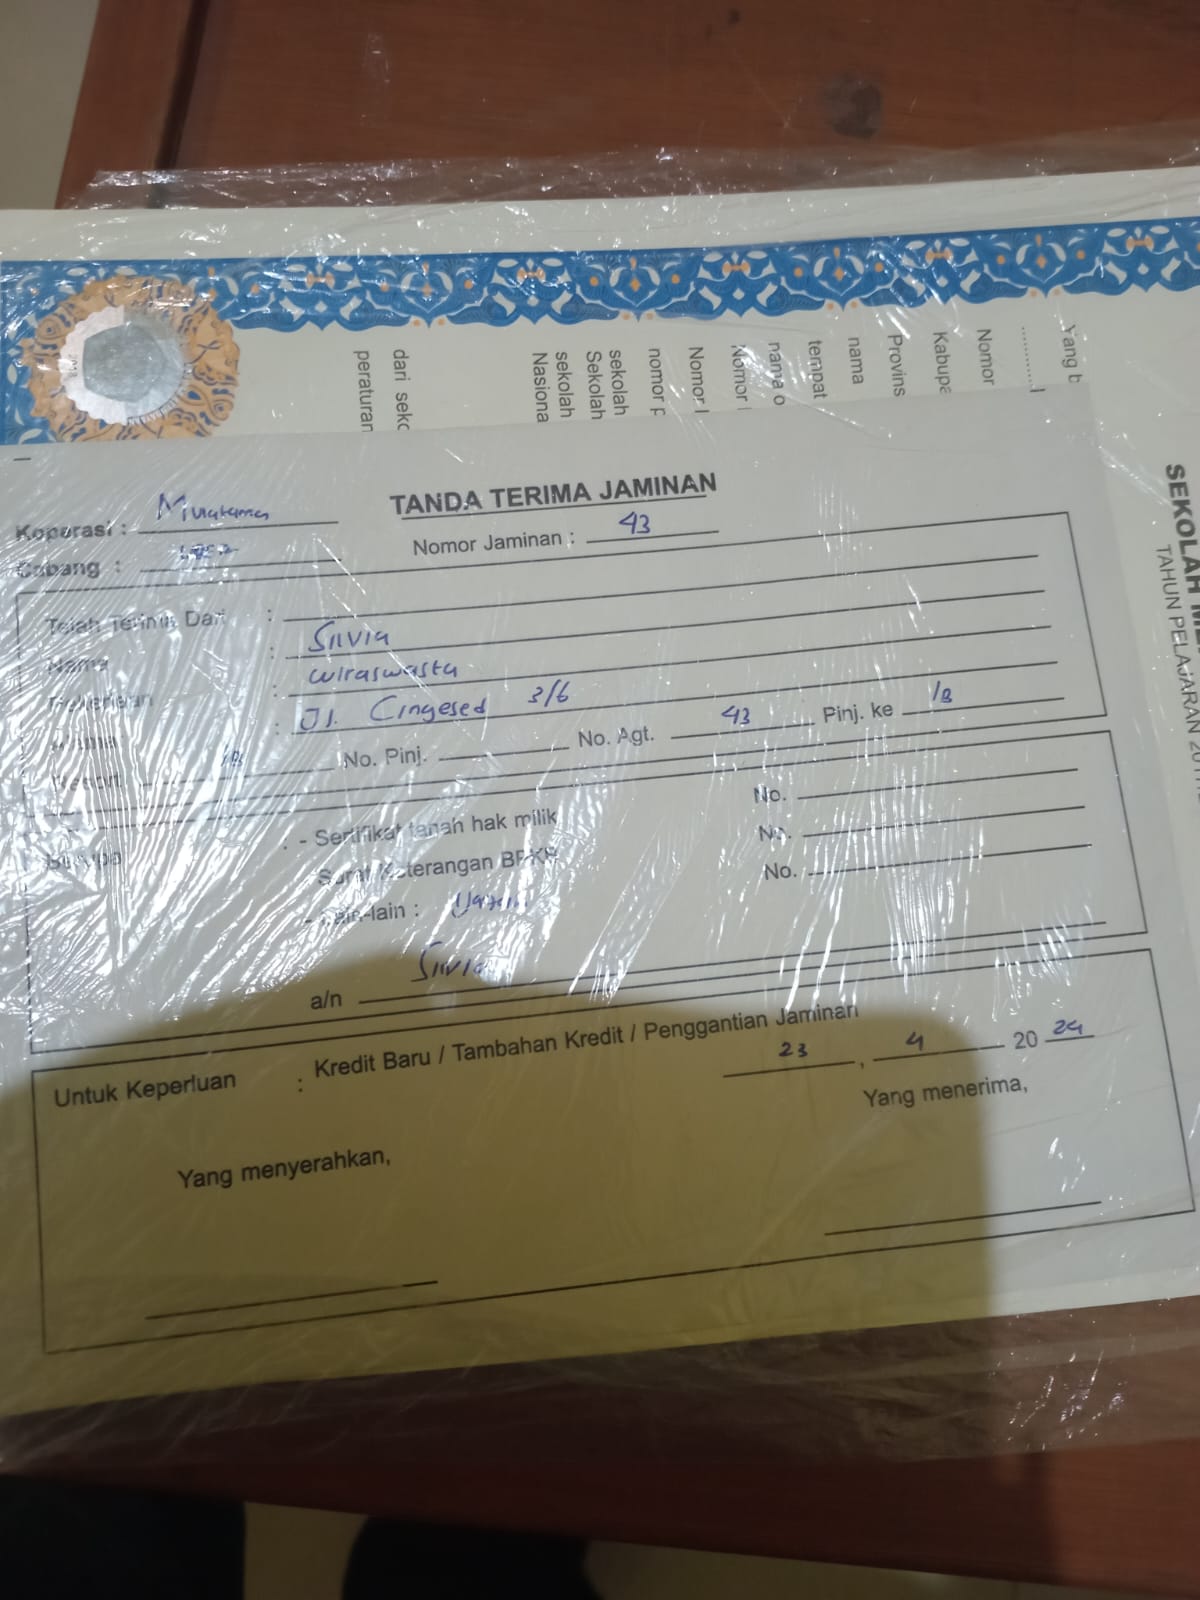 Yang b
..........
Nomor
Kabupa
Provins
nama
tempat
nama o
Nomor I
Nomor I
nomor p
sekolah
Sekolah
sekolah
Nasiona
dari seko
peraturan
SEKOLAH
TAHUN PELAJARAN
TANDA TERIMA JAMINAN
Koperasi :
Cabang :
Nomor Jaminan : 43
Telah Terima Dari :
Nama : Silvia
Pekerjaan : wiraswasta
: Jl. Cingesed 3/6
No. Pinj. No. Agt. 43 Pinj. ke 1B
- Sertifikat tanah hak milik No.
- Surat Keterangan BPKB No.
- Lain-lain : No.
a/n Silvia
Untuk Keperluan : Kredit Baru / Tambahan Kredit / Penggantian Jaminan
23 , 4 20 24
Yang menyerahkan, Yang menerima,